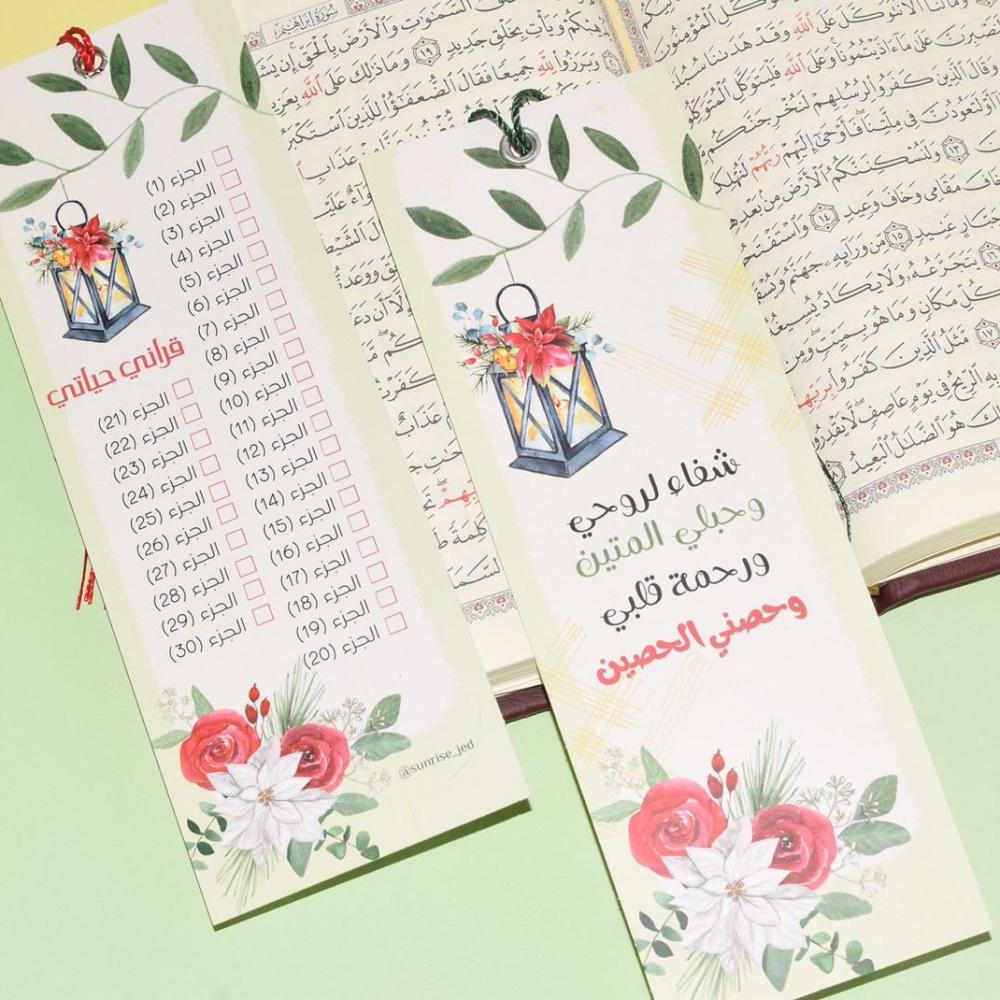 الجزء (1)
الجزء (2)
الجزء (3)
الجزء (4)
الجزء (5)
الجزء (6)
الجزء (7)
الجزء (8)
الجزء (9)
الجزء (10)
الجزء (11)
الجزء (12)
الجزء (13)
الجزء (14)
الجزء (15)
الجزء (16)
الجزء (17)
الجزء (18)
الجزء (19)
الجزء (20)
قرآني حياتي
الجزء (21)
الجزء (22)
الجزء (23)
الجزء (24)
الجزء (25)
الجزء (26)
الجزء (27)
الجزء (28)
الجزء (29)
الجزء (30)
@sunrise_jed
شفاء لروحي
وحبلي المتين
ورحمة قلبي
وحصني الحصين
المؤمنون
وما لنا ألا نتوكل على الله وقد هدىنا سبلنا
على ما ءاذيتمونا وعلى الله فليتوكل المتوكلون
وقال الذين كفروا لرسلهم لنخرجنكم
أو لتعودن في ملتنا فأوحى إليهم ربهم لنهلكن
١٣ ولنسكننكم الأرض من بعدهم
خاف مقامي وخاف وعيد ١٤ واستفتحوا
جبار عنيد ١٥ من ورائه جهنم ويسقى
١٦ يتجرعه ولا يكاد يسيغه
كل مكان وما هو بميت ومن
١٧ مثل الذين كفروا بربهم
به الريح في يوم عاصف لا يقدرون
هو الضلال البعيد ١٨
سورة إبراهيم
السموات والأرض بالحق إن يشأ
يذهبكم ويأت بخلق جديد ١٩ وما ذلك على الله بعزيز
وبرزوا لله جميعا فقال الضعفؤا للذين استكبروا